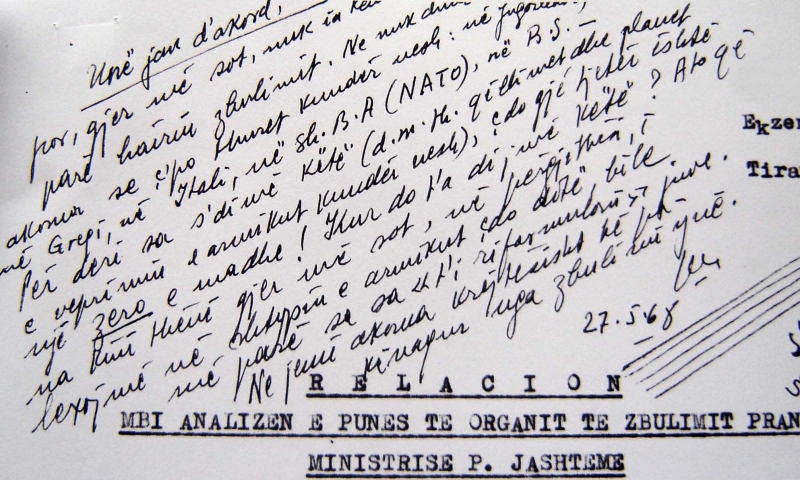 Unë jam d'akord,
por, gjer më sot, nuk ia
parë hairin zbulimit. Ne nuk
akoma se ç'po thuret kundër nesh: në Jugosllavi,
në Greqi, në Itali, në Sh.B.A (NATO), në B.S. —
Për deri sa s'dimë këtë (d.m.th. qëllimet dhe planet
e veprimin e armikut kundër nesh), çdo gjë tjetër është
një zero e madhe! Kur do t'a dijmë këtë? Ato që
na kini thënë gjer më sot, në përgjithësi, i
lexojmë në shtypin e armikut çdo ditë, bile
më parë se sa të t'i riformuloni ju.
Ne jemi akoma krejtësisht të pa
kënaqur nga zbulimi ynë.
27.5.68
Ekzem
Tira
R E L A C I O N
MBI ANALIZEN E PUNES TE ORGANIT TE ZBULIMIT PRAN
MINISTRISE P. JASHTEME